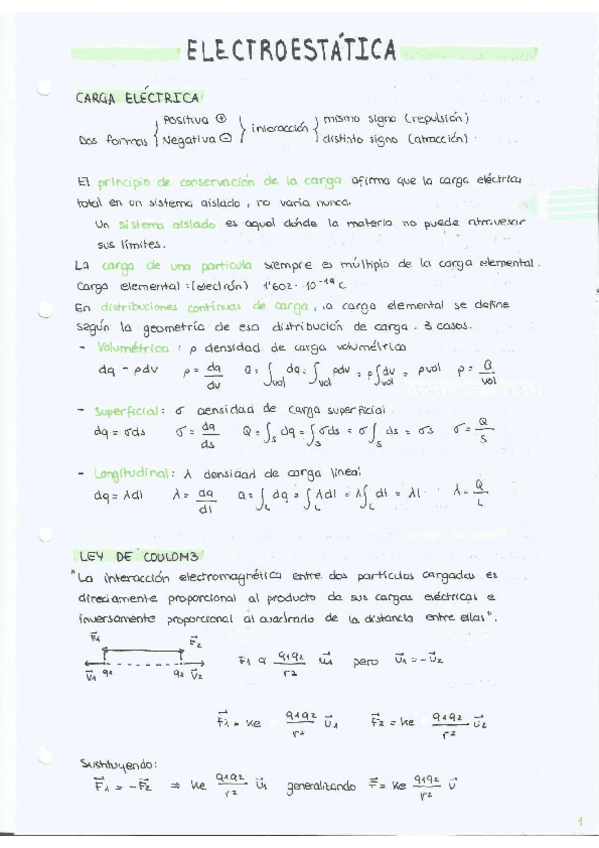 ELECTROESTÁTICA
CARGA ELÉCTRICA
Dos formas { Positiva ⊕ Negativa ⊖ } interacción { mismo signo (repulsión) distinto signo (atracción).
El principio de conservación de la carga afirma que la carga eléctrica
total en un sistema aislado, no varía nunca.
Un sistema aislado es aquel dónde la materia no puede atravesar
sus límites.
La carga de una partícula siempre es múltiplo de la carga elemental.
Carga elemental:(electrón) 1'602·10⁻¹⁹ C
En distribuciones continuas de carga, la carga elemental se define
según la geometría de esa distribución de carga. 3 casos.
- Volumétrica: ρ densidad de carga volumétrica
dq = ρdv ρ = dq/dv Q = ∫vol dq = ∫vol ρdv = ρ∫vol dv = ρvol ρ = Q/vol
- Superficial: σ densidad de carga superficial
dq = σds σ = dq/ds Q = ∫s dq = ∫s σds = σ∫s ds = σs σ = Q/S
- Longitudinal: λ densidad de carga lineal
dq = λdl λ = dq/dl Q = ∫L dq = ∫L λdl = λ∫L dl = λl λ = Q/L
LEY DE COULOMB
"La interacción electromagnética entre dos partículas cargadas es
directamente proporcional al producto de sus cargas eléctricas e
inversamente proporcional al cuadrado de la distancia entre ellas".
F⃗1 F⃗2
v⃗1 q1 q2 v⃗2
F1 α q1q2/r² u⃗1 pero u⃗1 = -u⃗2
F⃗1 = Ke q1q2/r² u⃗1 F⃗2 = Ke q1q2/r² u⃗2
Sustituyendo:
F⃗1 = -F⃗2 ⇒ Ke q1q2/r² u⃗1 generalizando F⃗ = Ke q1q2/r² u⃗
1